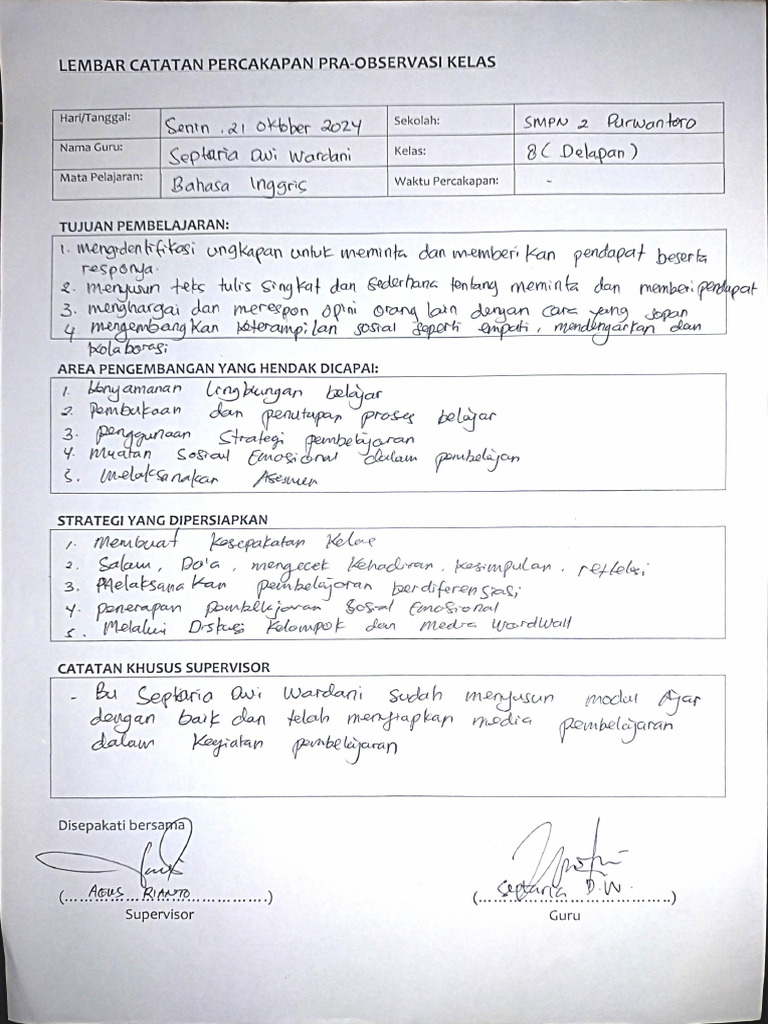 LEMBAR CATATAN PERCAKAPAN PRA-OBSERVASI KELAS
Hari/Tanggal: Senin, 21 Oktober 2024 Sekolah: SMPN 2 Purwantoro
Nama Guru: Septaria Dwi Wardani Kelas: 8 (Delapan)
Mata Pelajaran: Bahasa Inggris Waktu Percakapan: -
TUJUAN PEMBELAJARAN:
1. mengidentifikasi ungkapan untuk meminta dan memberikan pendapat beserta
responya.
2. menyusun teks tulis singkat dan sederhana tentang meminta dan memberi pendapat
3. menghargai dan merespon opini orang lain dengan cara yang sopan
4. mengembangkan keterampilan sosial seperti empati, mendengarkan dan
kolaborasi
AREA PENGEMBANGAN YANG HENDAK DICAPAI:
1. Kenyamanan lingkungan belajar
2. Pembukaan dan penutupan proses belajar
3. penggunaan Strategi pembelajaran
4. Muatan Sosial Emosional dalam pembelajan
5. Melaksanakan Asesmen
STRATEGI YANG DIPERSIAPKAN
1. Membuat Kesepakatan Kelas
2. Salam, Do'a, mengecek Kehadiran, Kesimpulan, refleksi
3. Melaksanakan pembelajaran berdiferensiasi
4. penerapan pembelajaran Sosial Emosional
5. Melalui Diskusi Kelompok dan media Wordwall
CATATAN KHUSUS SUPERVISOR
- Bu Septaria Dwi Wardani sudah menyusun modul Ajar
dengan baik dan telah menyiapkan media pembelajaran
dalam kegiatan pembelajaran
Disepakati bersama
(AGUS RIANTO) (Septaria D.W.)
Supervisor Guru